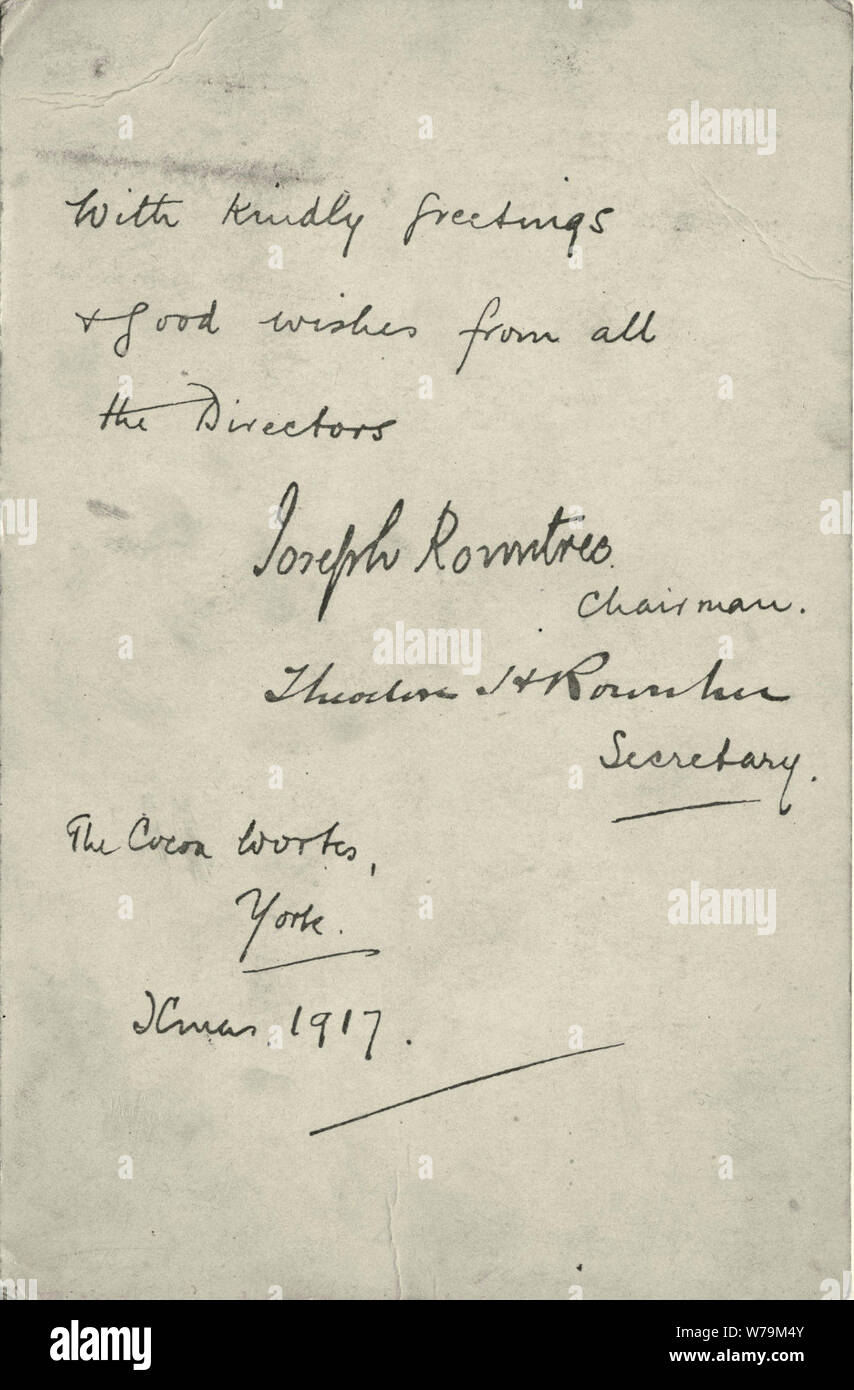 With kindly greetings
& good wishes from all
the Directors
Joseph Rowntree
Chairman.
Theodore H Rowntree
Secretary.
The Cocoa Works,
York.
Xmas 1917.
alamy
a
alamy
Image ID: W79M4Y
www.alamy.com